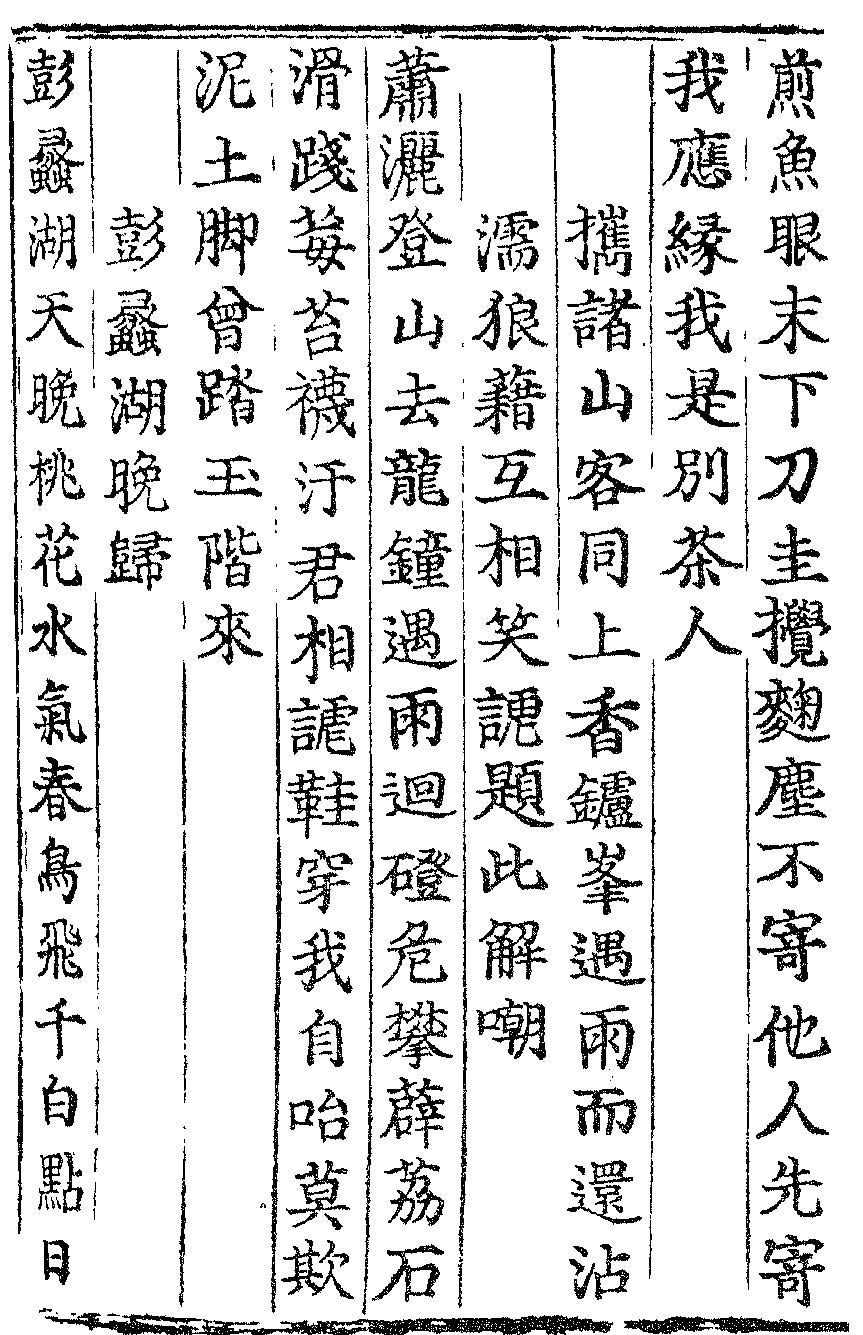 煎魚眼末下刀圭攪麴塵不寄他人先寄
我應緣我是別茶人
攜諸山客同上香鑪峯遇雨而還沾
濡狼藉互相笑謔題此解嘲
蕭灑登山去龍鐘遇雨迴磴危攀薜荔石
滑踐莓苔襪汙君相謔鞋穿我自咍莫欺
泥土脚曾踏玉階來
彭蠡湖晚歸
彭蠡湖天晚桃花水氣春鳥飛千白點日